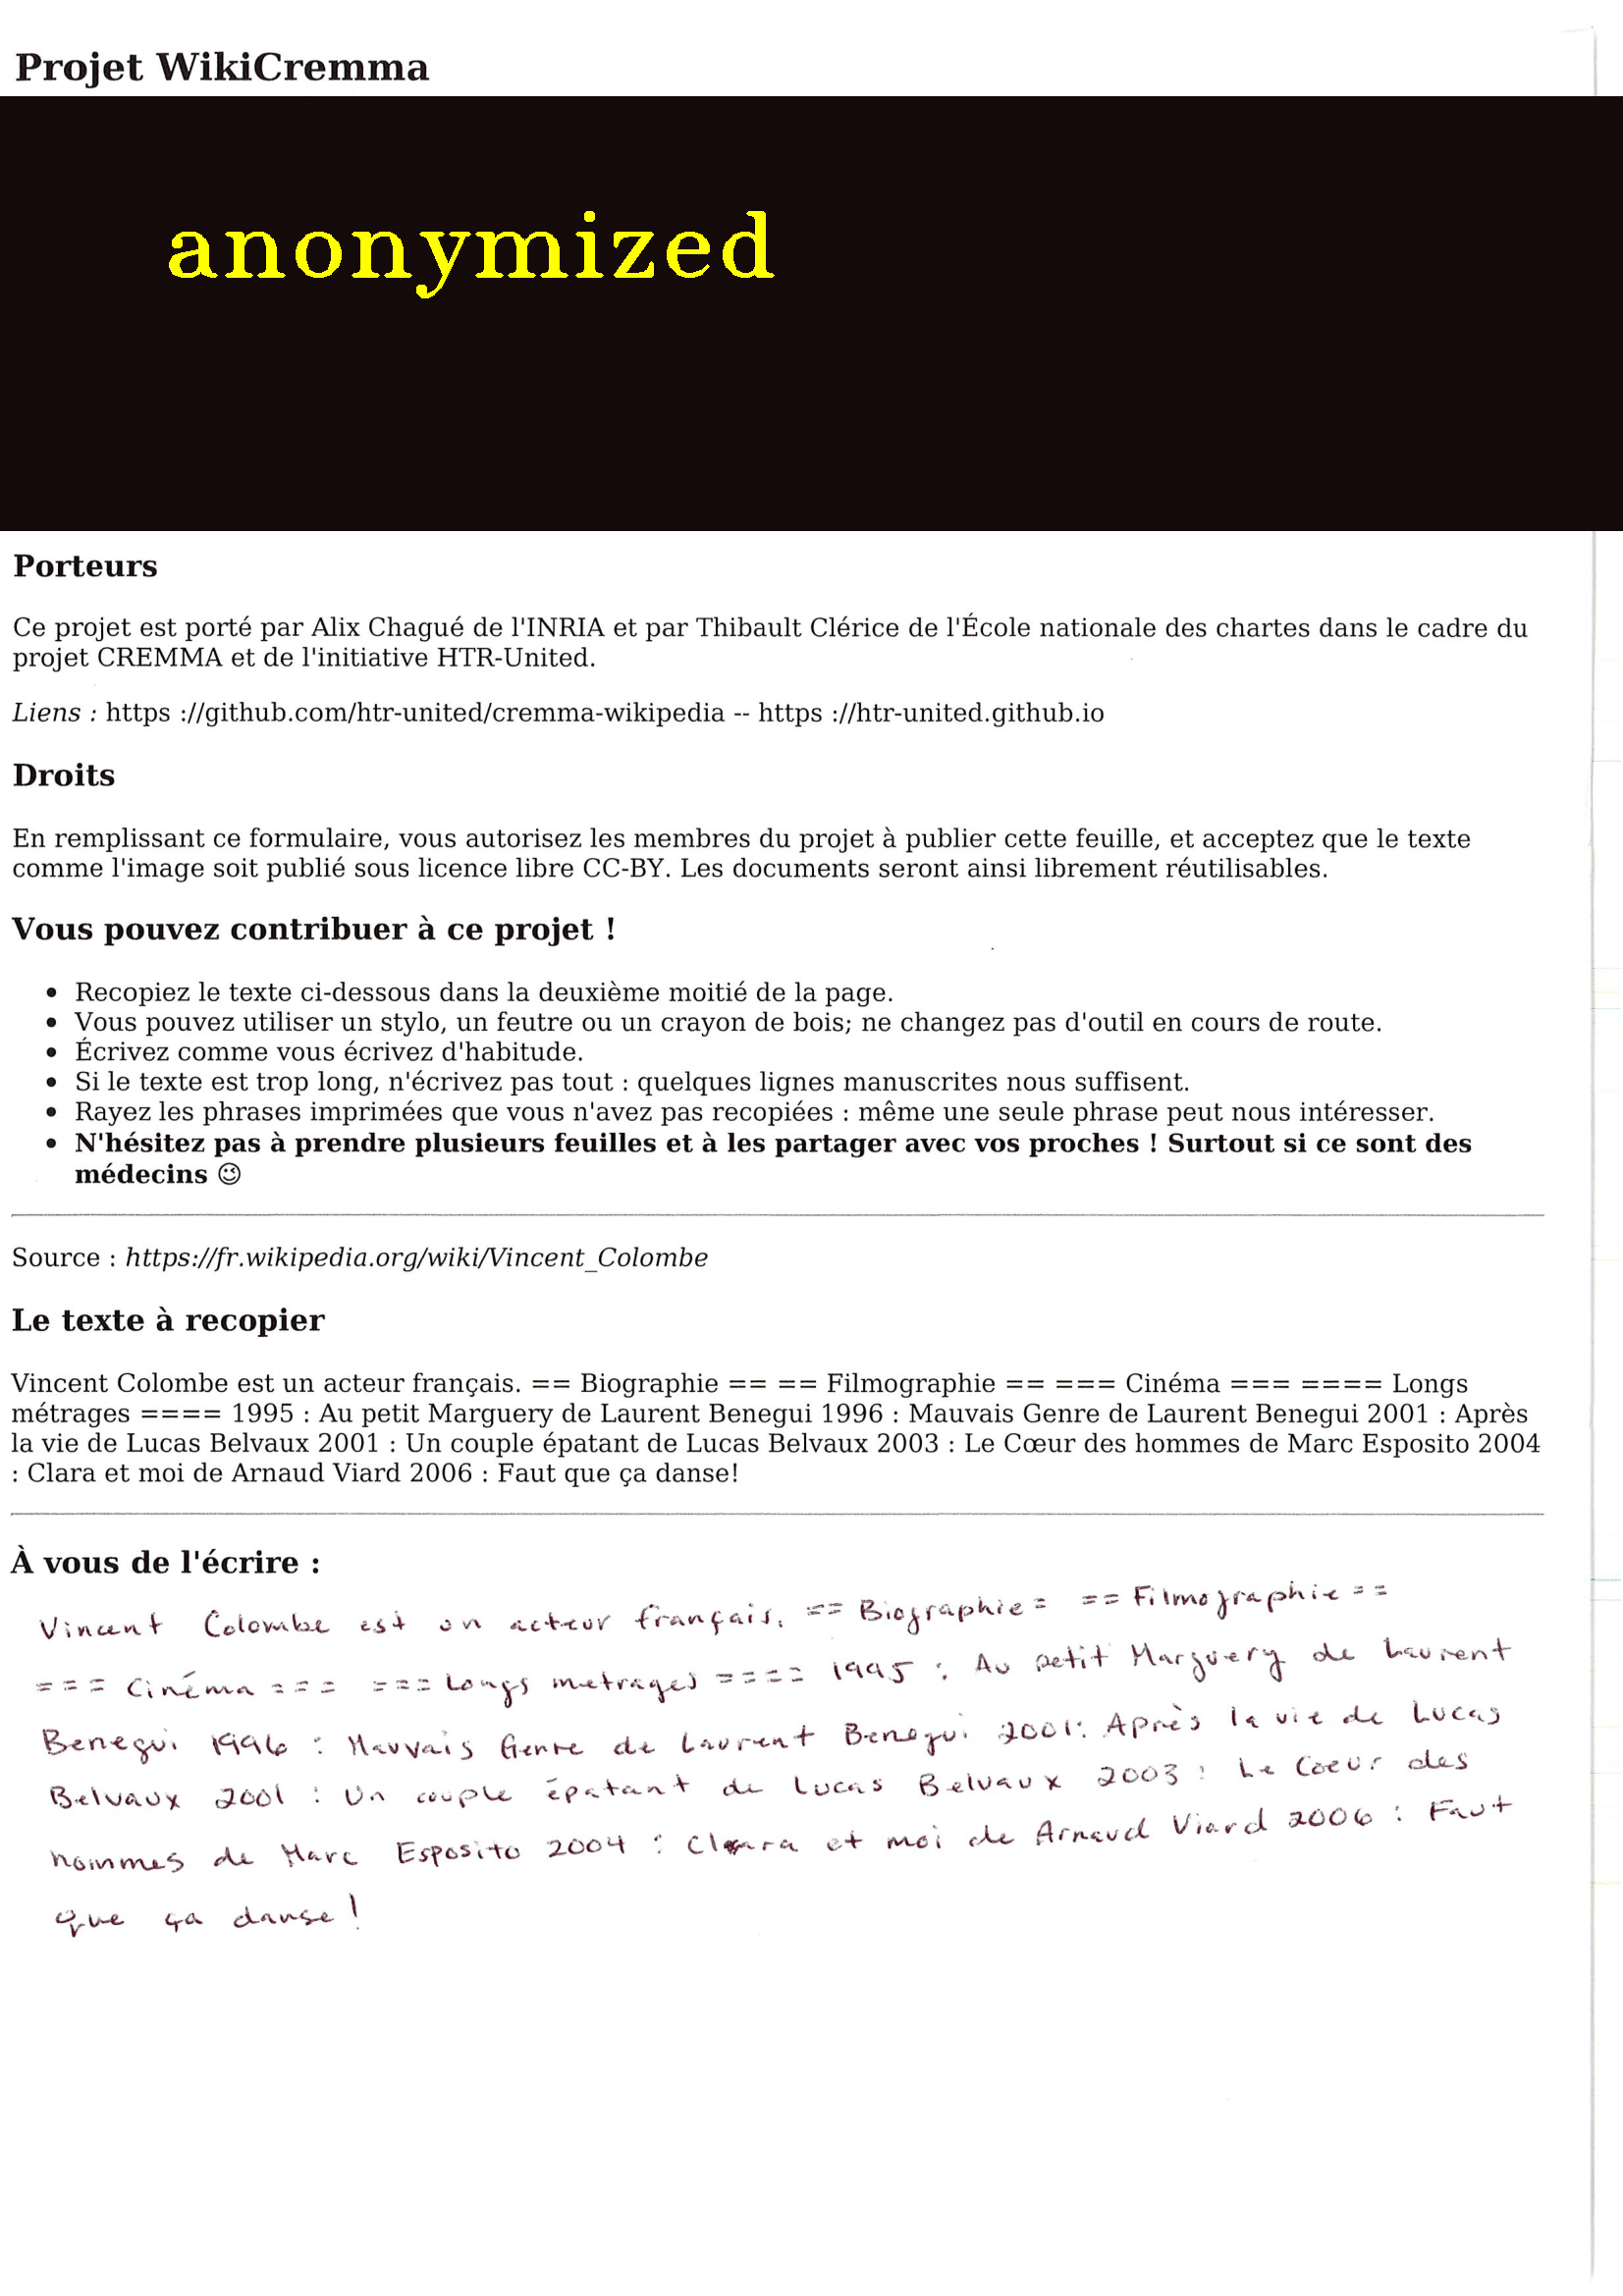 Projet WikiCremma
anonymized
Porteurs
Ce projet est porté par Alix Chagué de l'INRIA et par Thibault Clérice de l'École nationale des chartes dans le cadre du
projet CREMMA et de l'initiative HTR-United.
Liens : https ://github.com/htr-united/cremma-wikipedia -- https ://htr-united.github.io
Droits
En remplissant ce formulaire, vous autorisez les membres du projet à publier cette feuille, et acceptez que le texte
comme l'image soit publié sous licence libre CC-BY. Les documents seront ainsi librement réutilisables.
Vous pouvez contribuer à ce projet !
• Recopiez le texte ci-dessous dans la deuxième moitié de la page.
• Vous pouvez utiliser un stylo, un feutre ou un crayon de bois; ne changez pas d'outil en cours de route.
• Écrivez comme vous écrivez d'habitude.
• Si le texte est trop long, n'écrivez pas tout : quelques lignes manuscrites nous suffisent.
• Rayez les phrases imprimées que vous n'avez pas recopiées : même une seule phrase peut nous intéresser.
• N'hésitez pas à prendre plusieurs feuilles et à les partager avec vos proches ! Surtout si ce sont des
médecins 😉
Source : https://fr.wikipedia.org/wiki/Vincent_Colombe
Le texte à recopier
Vincent Colombe est un acteur français. == Biographie == == Filmographie == === Cinéma === ==== Longs
métrages ==== 1995 : Au petit Marguery de Laurent Benegui 1996 : Mauvais Genre de Laurent Benegui 2001 : Après
la vie de Lucas Belvaux 2001 : Un couple épatant de Lucas Belvaux 2003 : Le Cœur des hommes de Marc Esposito 2004
: Clara et moi de Arnaud Viard 2006 : Faut que ça danse!
À vous de l'écrire :
Vincent Colombe est un acteur français. == Biographie = == Filmographie ==
=== Cinéma === === Longs metrages ==== 1995 : Au petit Marguery de Laurent
Benegui 1996 : Mauvais Genre de Laurent Benegui 2001 : Après la vie de Lucas
Belvaux 2001 : Un couple épatant de Lucas Belvaux 2003 : Le Coeur des
hommes de Marc Esposito 2004 : Clara et moi de Arnaud Viard 2006 : Faut
que ça danse !